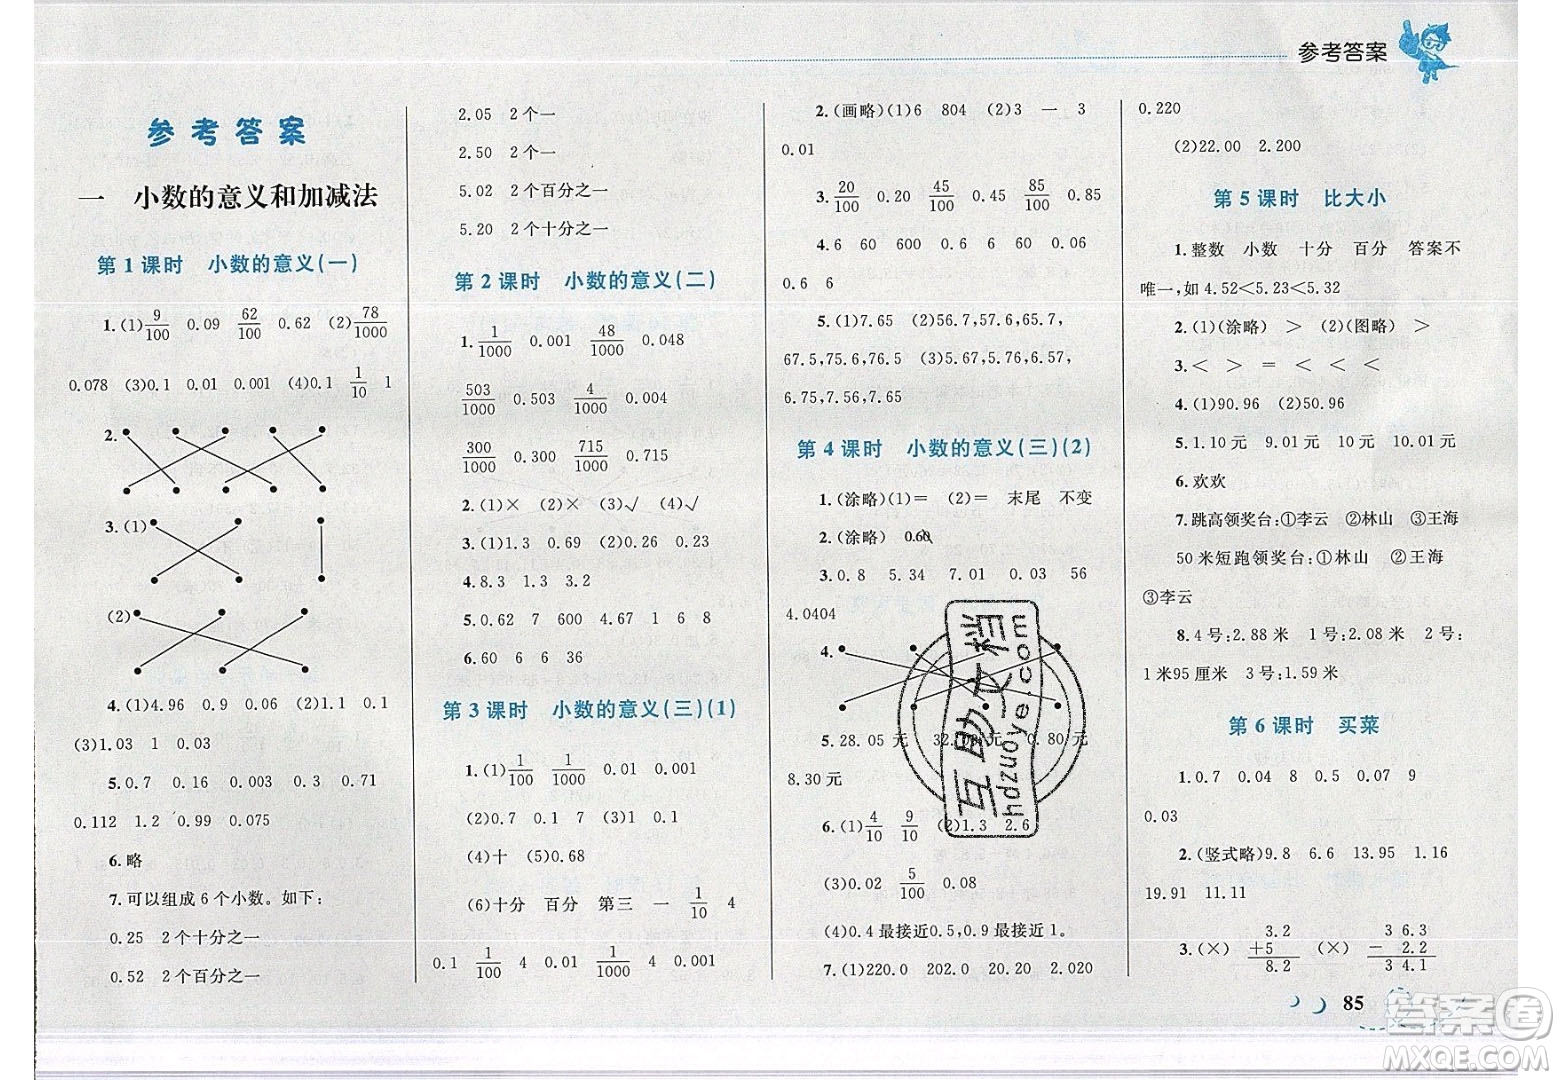 参考答案
参考答案
一 小数的意义和加减法
第1课时 小数的意义(一)
1.(1)9/100 0.09 62/100 0.62 (2)78/1000
0.078 (3)0.1 0.01 0.001 (4)0.1 1/10 1
2.
3.(1)
(2)
4.(1)4.96 0.9 0.06 (2)1.1 0.1
(3)1.03 1 0.03
5.0.7 0.16 0.003 0.3 0.71
0.112 1.2 0.99 0.075
6.略
7.可以组成6个小数。如下:
0.25 2个十分之一
0.52 2个百分之一
2.05 2个一
2.50 2个一
5.02 2个百分之一
5.20 2个十分之一
第2课时 小数的意义(二)
1.1/1000 0.001 48/1000 0.048
503/1000 0.503 4/1000 0.004
300/1000 0.300 715/1000 0.715
2.(1)× (2)× (3)√ (4)√
3.(1)1.3 0.69 (2)0.26 0.23
4.8.3 1.3 3.2
5.0.62 7 600 4.67 1 6 8
6.60 6 6 36
第3课时 小数的意义(三)(1)
1.(1)1/100 1/1000 0.01 0.001
(2)0.7 0.1 7 (3)0.06
(4)十 (5)0.68
(6)十分 百分 第三 一 1/10 4
0.1 1/100 4 0.01 1/1000 4 0.001
2.(画略)(1)6 804 (2)3 一 3
0.01
3.20/100 0.20 45/100 0.45 85/100 0.85
4.6 60 600 0.6 6 0.06
0.6 6
5.(1)7.65 (2)56.7,57.6,65.7,
67.5,75.6,76.5 (3)5.67,5.76,6.57,
6.75,7.56,7.65
第4课时 小数的意义(三)(2)
1.(涂略)(1)= (2)= 末尾 不变
2.(涂略) 0.60
3.0.8 5.34 7.01 0.03 56
4.0404
4.
5.28.05元 32.08元 0.80元
8.30元
6.(1)4/10 9/10 (2)1.3 2.6
(3)0.02 5/100 0.08
(4)0.4最接近0.5,0.9最接近1。
7.(1)220.0 202.0 20.20 2.020
0.220
(2)22.00 2.200
第5课时 比大小
1.整数 小数 十分 百分 答案不
唯一,如4.52<5.23<5.32
2.(1)(涂略) > (2)(图略) >
3.< > = < < <
4.(1)90.96 (2)50.96
5.1.10元 9.01元 10元 10.01元
6.欢欢
7.跳高领奖台:①李云 ②林山 ③王海
50米短跑领奖台:①林山 ②王海
③李云
8.4号:2.88米 1号:2.08米 2号:
1米95厘米 3号:1.59米
第6课时 买菜
1.0.7 0.04 8 0.5 0.07 9
0.03
2.(竖式略)9.8 6.6 13.95 1.16
19.91 11.11
3.(×) 3.2 +5 8.2 (×) 36.3 - 2.2 34.1
85
互助文档
hdzuoye.com
答案卷
MXQE.COM